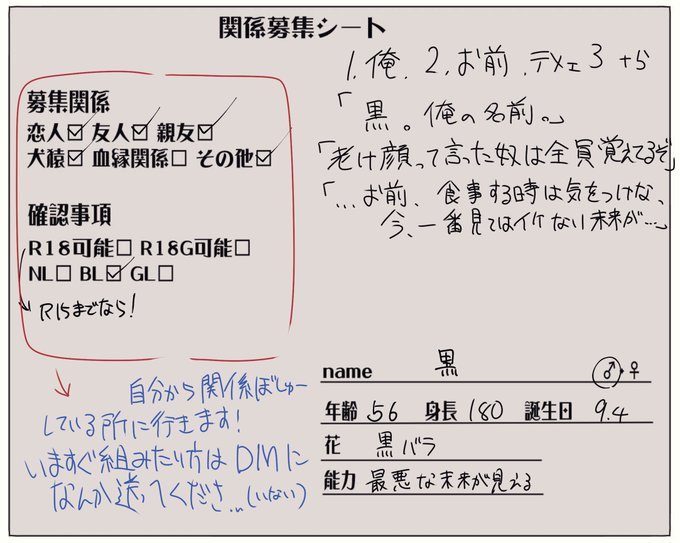 関係募集シート
募集関係
恋人☑ 友人☑ 親友☑
犬猿☑ 血縁関係☐ その他☑
確認事項
R18可能☐ R18G可能☐
NL☐ BL☑ GL☐
R15までなら!
自分から関係ぼしゅー
している所に行きます!
いますぐ組みたい方はDMに
なんか送ってくださ…(いない)
1.俺. 2.お前.テメェ 3 + ら
「黒。俺の名前。」
「老け顔って言った奴は全員覚えてるぞ」
「…お前、食事する時は気をつけな、
今、一番見てはイケない未来が…」
name 黒 ♂・♀
年齢 56 身長 180 誕生日 9.4
花 黒バラ
能力 最悪な未来が見える